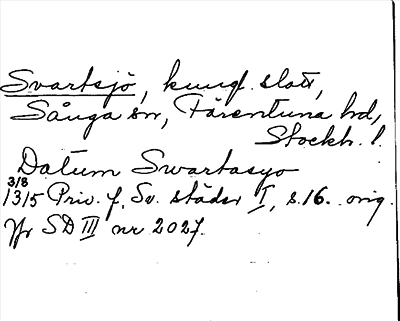 Svartsjö, kungl. slott,
Sånga sn, Färentuna hd,
Stockh. l.
Datum Swartasyo
3/8
1315 Priv. f. Sv. städer I, s. 16. orig.
Jfr SD III nr 2027.